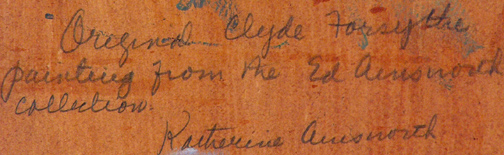 Original Clyde Forsythe
painting from the Ed Ainsworth
collection.
Katherine Ainsworth